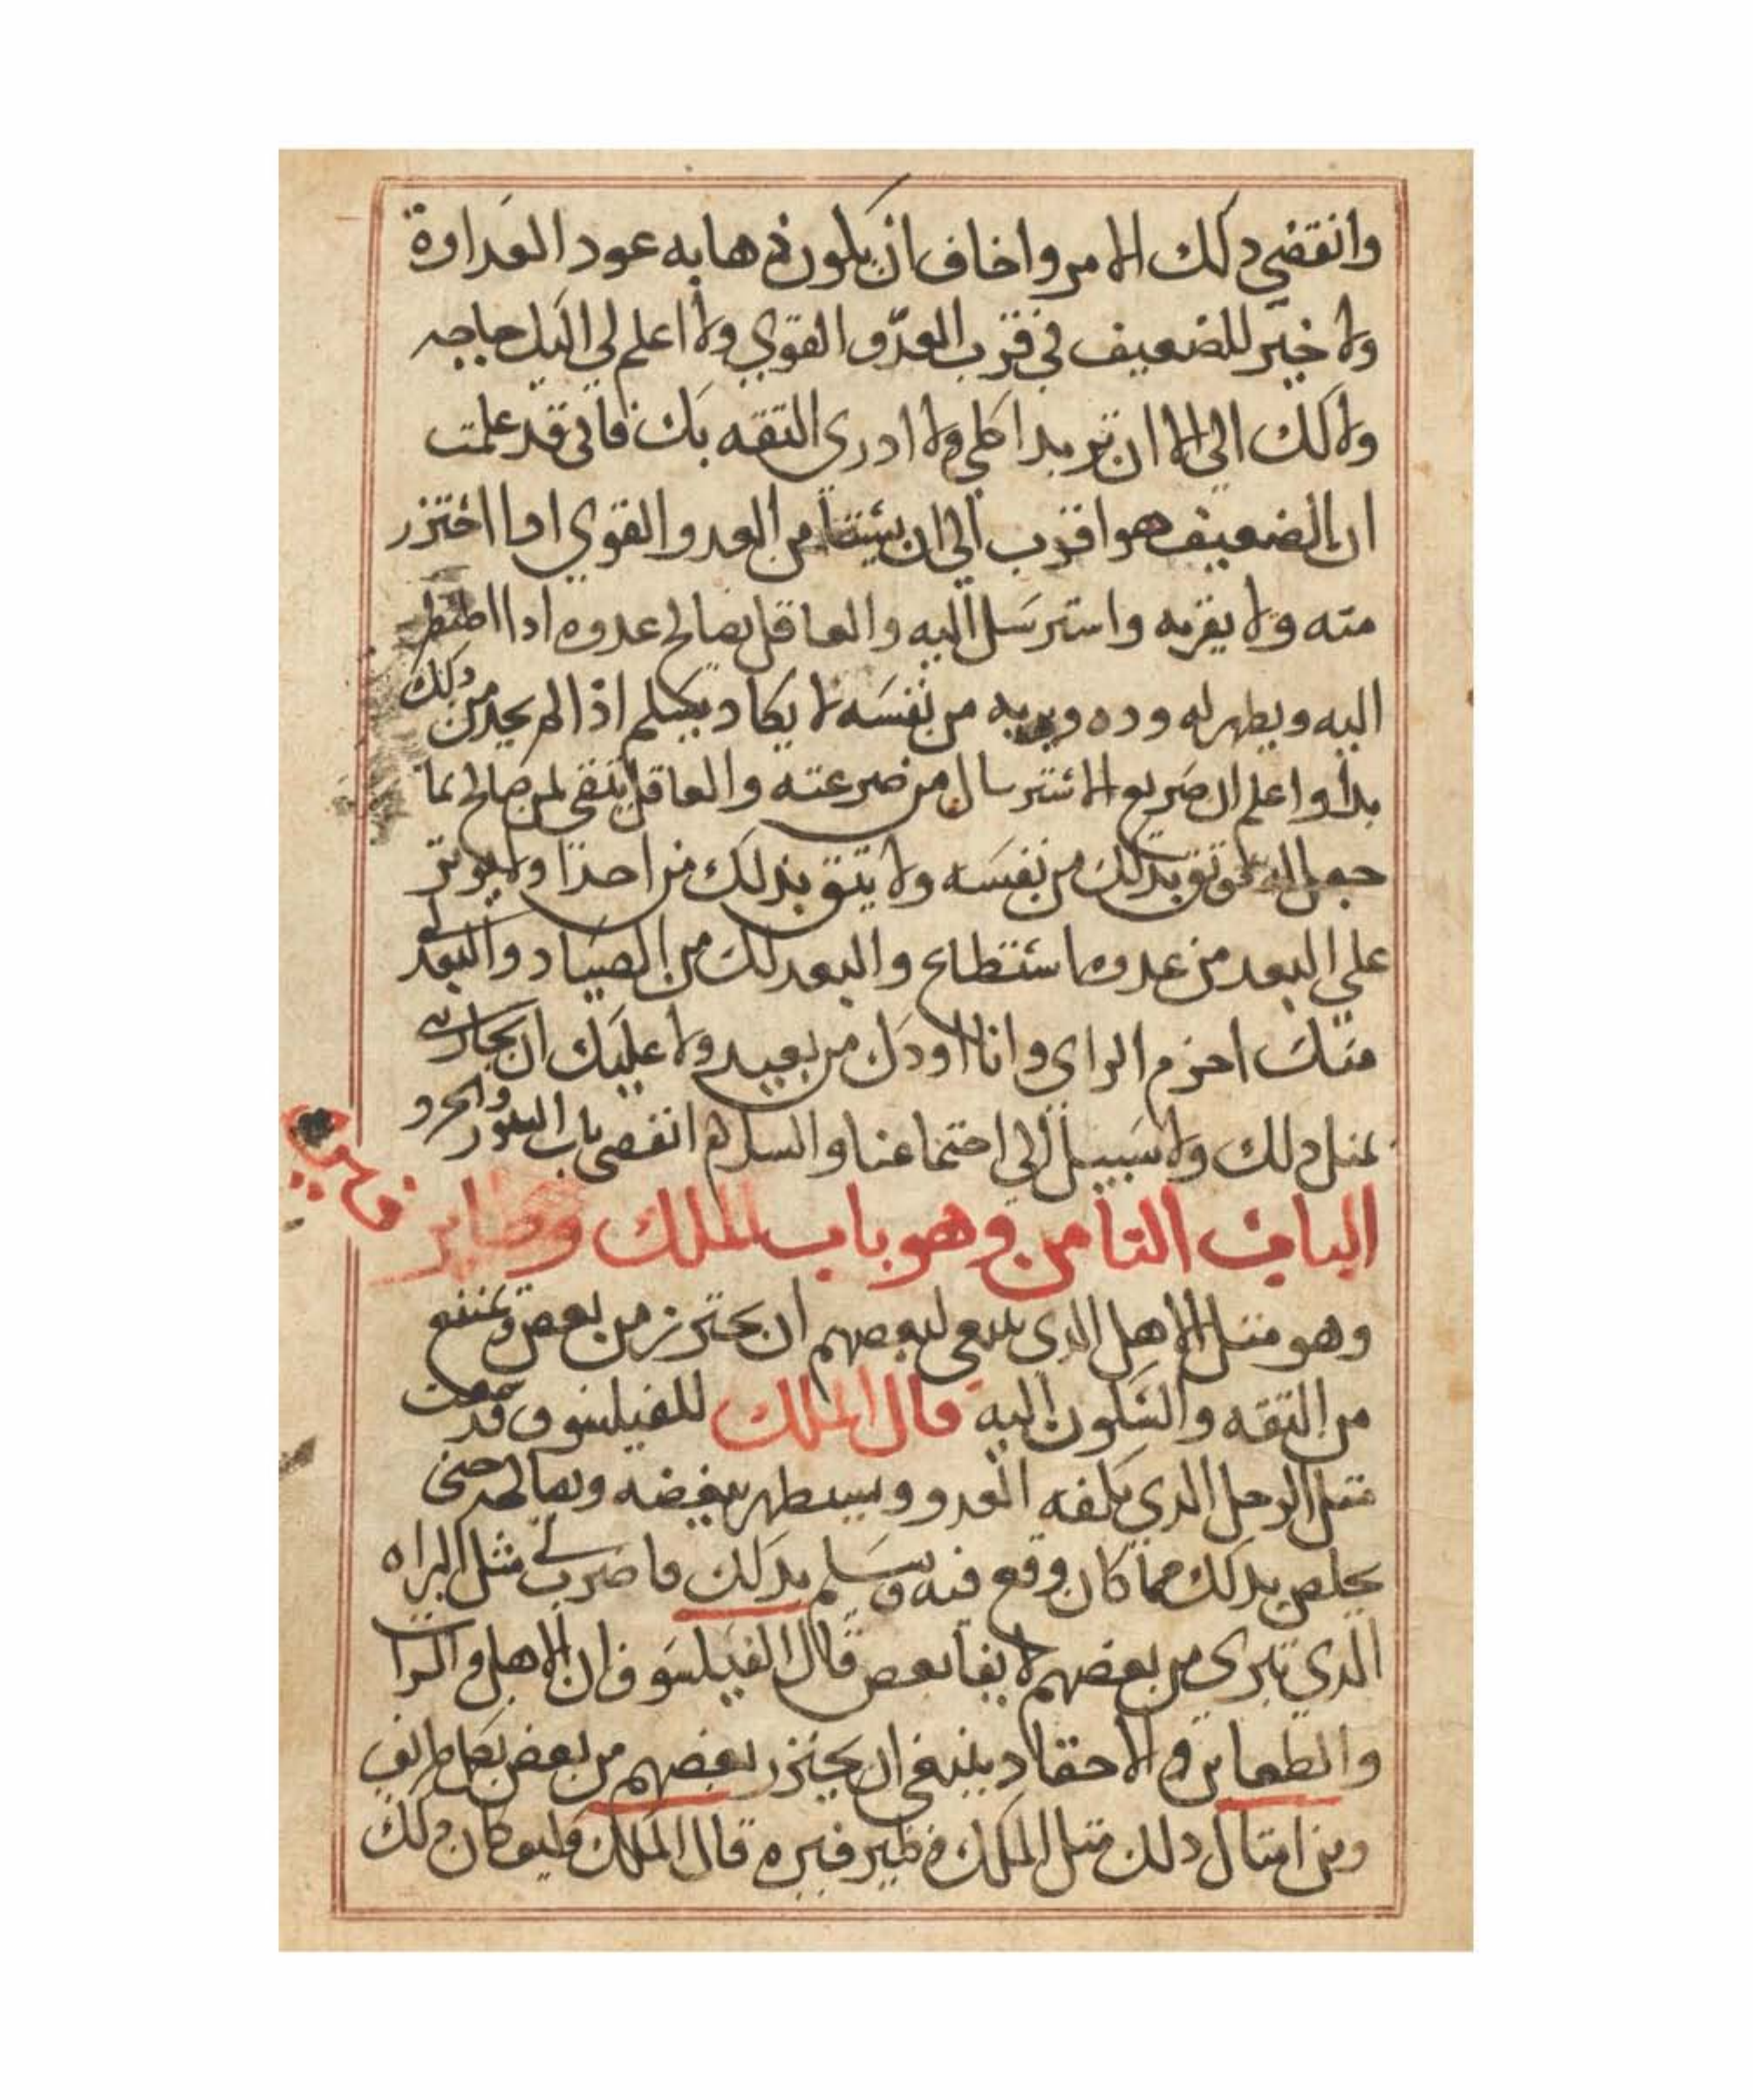 وانقضي دلك الامر واخاف ان يكون ذهابه عود العداوة
ولا خير للضعيف في قرب العدّو القوي ولا اعلم لي اليك حاجه
ولا لك الي الا ان تريد اكلي ولا ادري التقه بك فاني قد علمت
ان الضعيف هو اقرب الي ان من العدو القوي ادا احتزر
منه ولا يغربه واسترسل اليه والعاقل يصالح عدوه ادا اضطر
اليه ويظهر له وده ويريه من نفسه لا يكاد اذا لم يجد من دلك
بدا واعلم ان صريع الاسترسال من ضرعته والعاقل يتقي لمن صالح بما
جعل له بدلك من نفسه ولا يتق بدلك من احدا ولا يوتر
علي البعد من عدوه ما ستطاع والبعد لك من الصياد والبعد لي
منك احزم الراي وانا اودك من بعيد ولا عليك ان تجازيني
بمتل دلك ولا سبيل الي اجتماعنا والسلام انقضي باب السنور والجرد
الباب التامن وهو باب الملك وطاير
وهو متل الاهل الدي ينبغي لبعضهم ان يحترز من بعض ويمتنع
من التقه والسكون اليه قال الملك للفيلسوف قد سمعت
متل الرجل الدي يكلفه العدو ويستطهر ببغضه ويصالحه حتي
يخلص بدلك مما كان وقع فيه ويسلم بدلك فاضرب لي مثل
الدي تبري من بعضهم لا بعض قال الفيلسوف ان الاهل و
و والاحقاد ينبغي ان يحتزر بعضهم من بعض بكل طريق
ومن امتال دلك متل الملك وطير فنزه قال الملك وكيف كان دلك